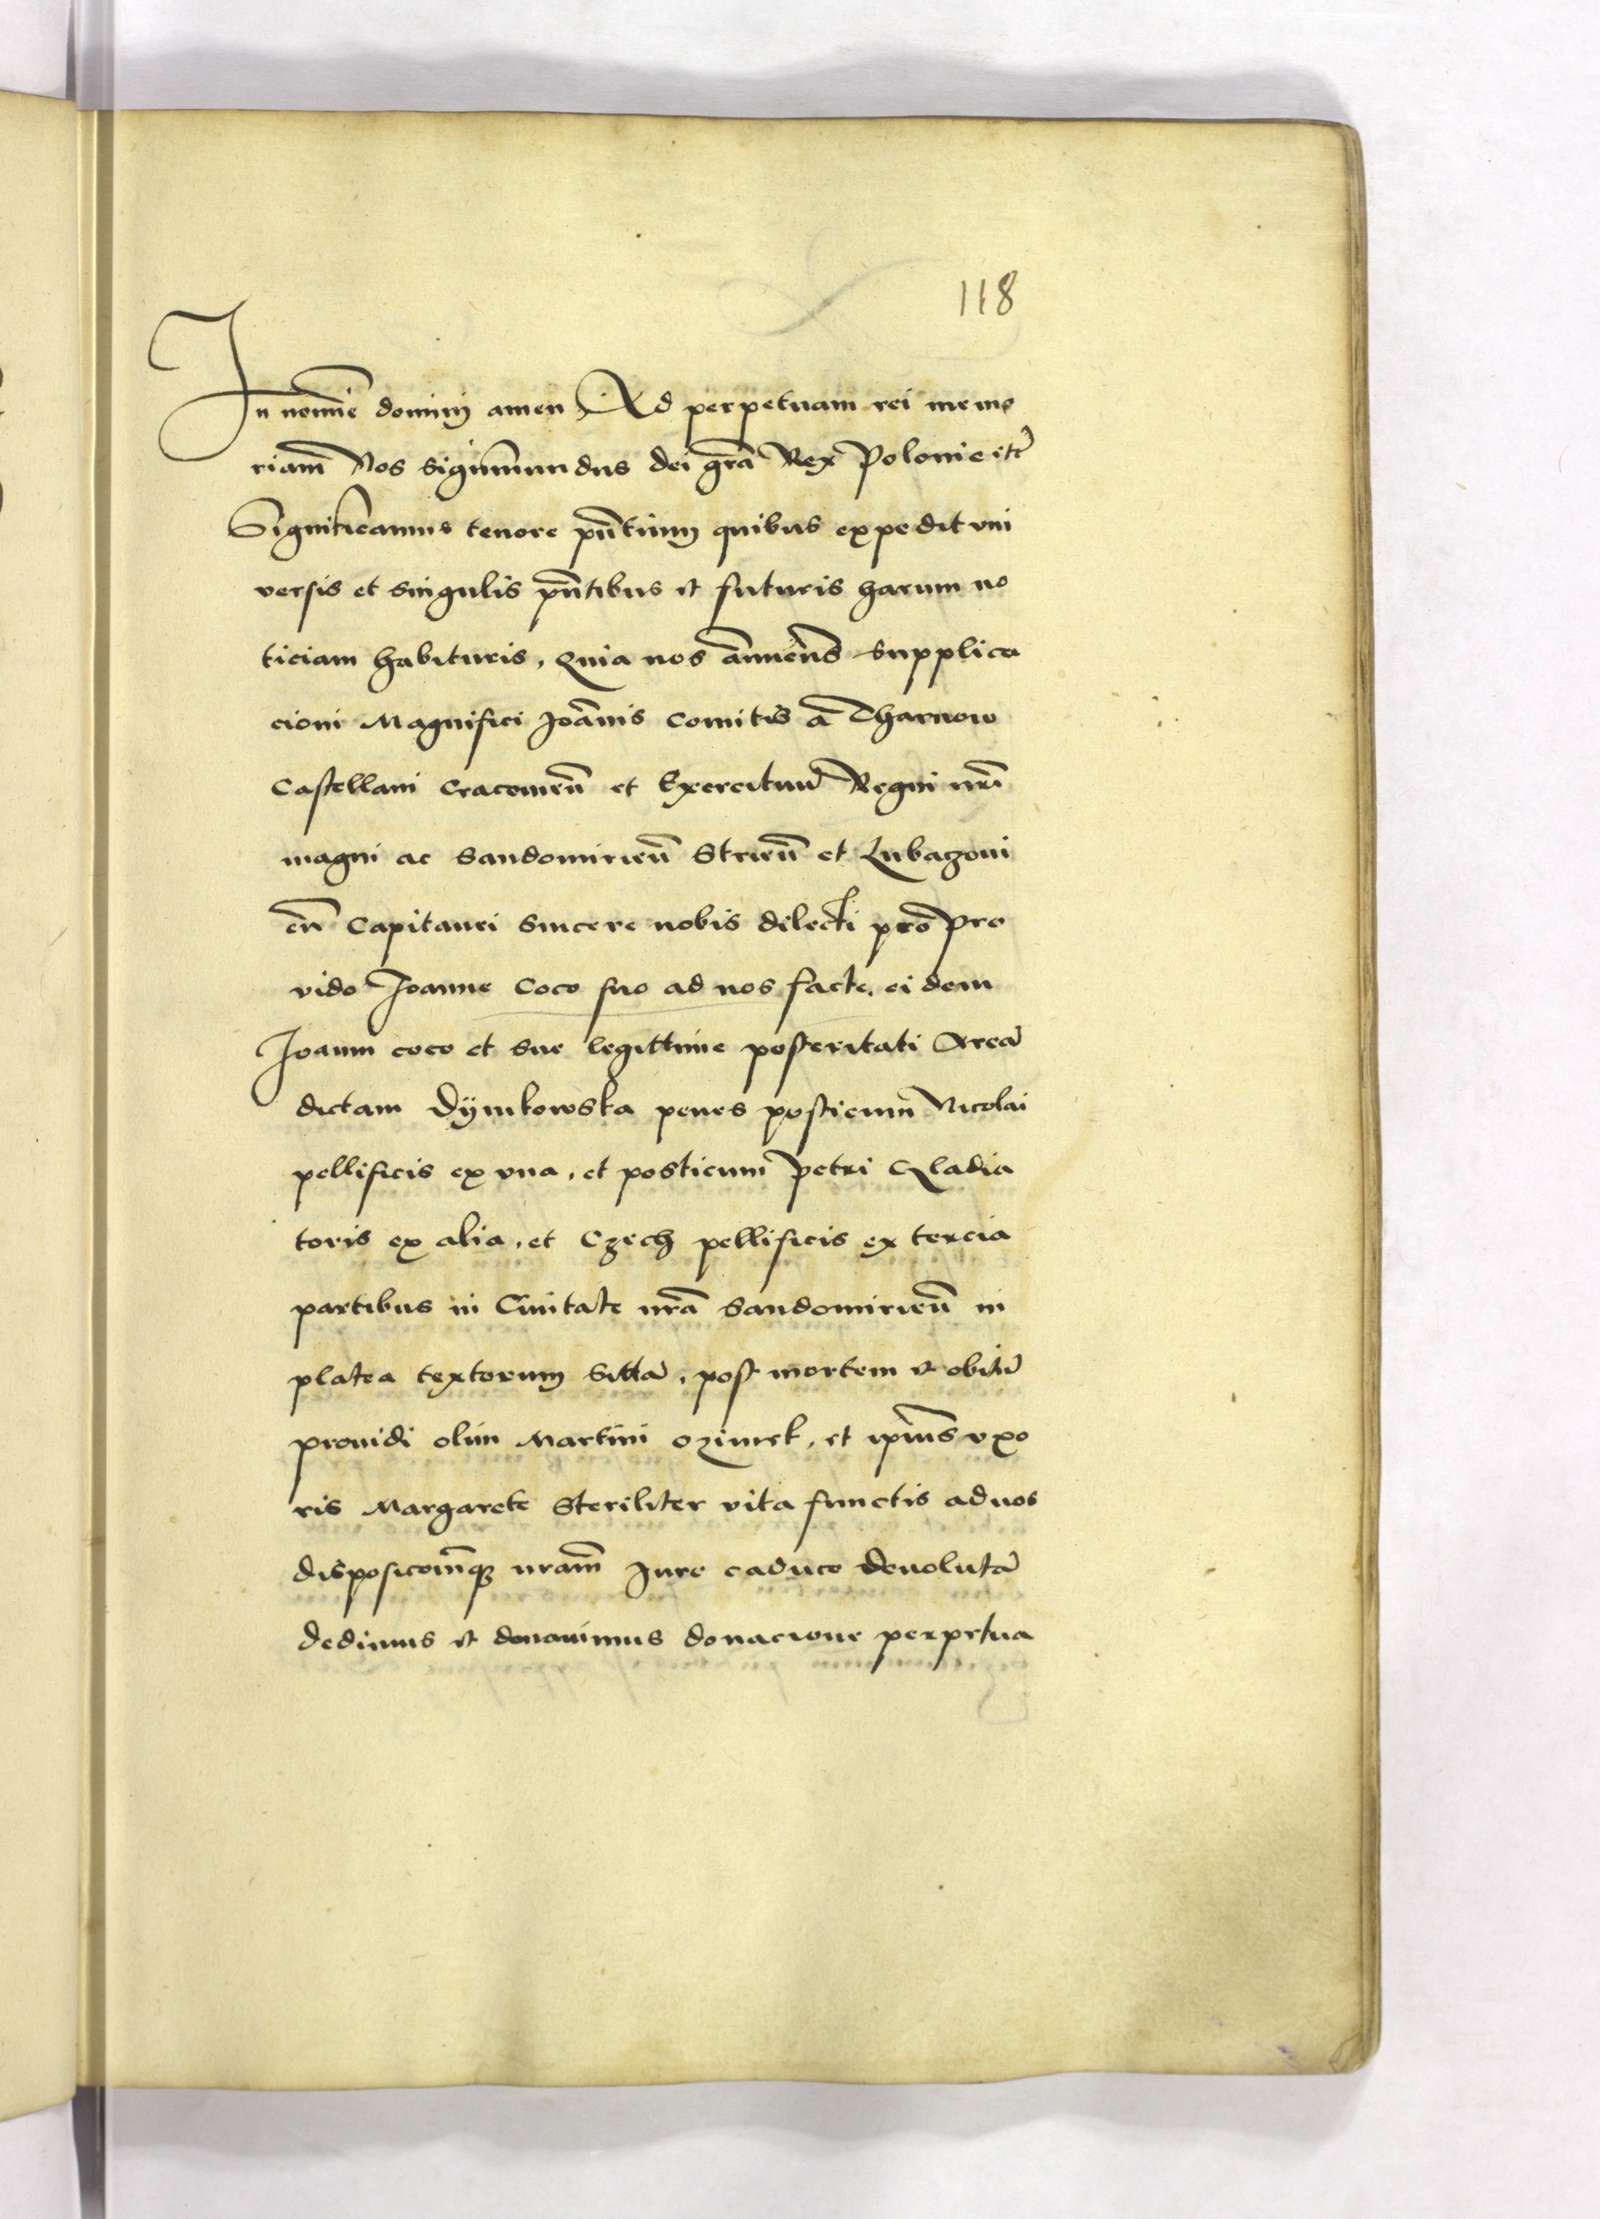 118
In nomīe dominj amen Ad perpetuam rei memo
riam̄ Nos Sigismundus dei grā Rex Polonie etc̄
Significamus tenore pn̄tium quibus expedit vni
versis et singulis pn̄tibus et futuris harum no
ticiam habituris, Quia nos annuen̄d supplica
cioni Magnifici Joān̄is Comitis a Tharnow
Castellani Cracouień et Exercituū Regni nr̄i
magni ac Sandomirień Strień et Lubaczoui
eń Capitanei Sincere nobis dilecti pro Pro
vido Joanne Coco suo ad nos facte, ei dem
Joanni coco et sue legittime posteritati Areā
dictam Dÿmkowska penes posticum Nicolai
pellificis ex vna, et posticum Petri Gladia
toris ex alia, et Czech pellificis ex tercia
partibus in Ciuitate nr̄a Sandomirień in
platea textorum sittā, post mortem et obitū
prouidi olim Martini ozimek, et ip̄ius vxo
ris Margarete Steriliter vita functis ad nos
disposicōnemq nr̄am̄ Jure caduco deuolutā
dedimus et donauimus donacione perpetua